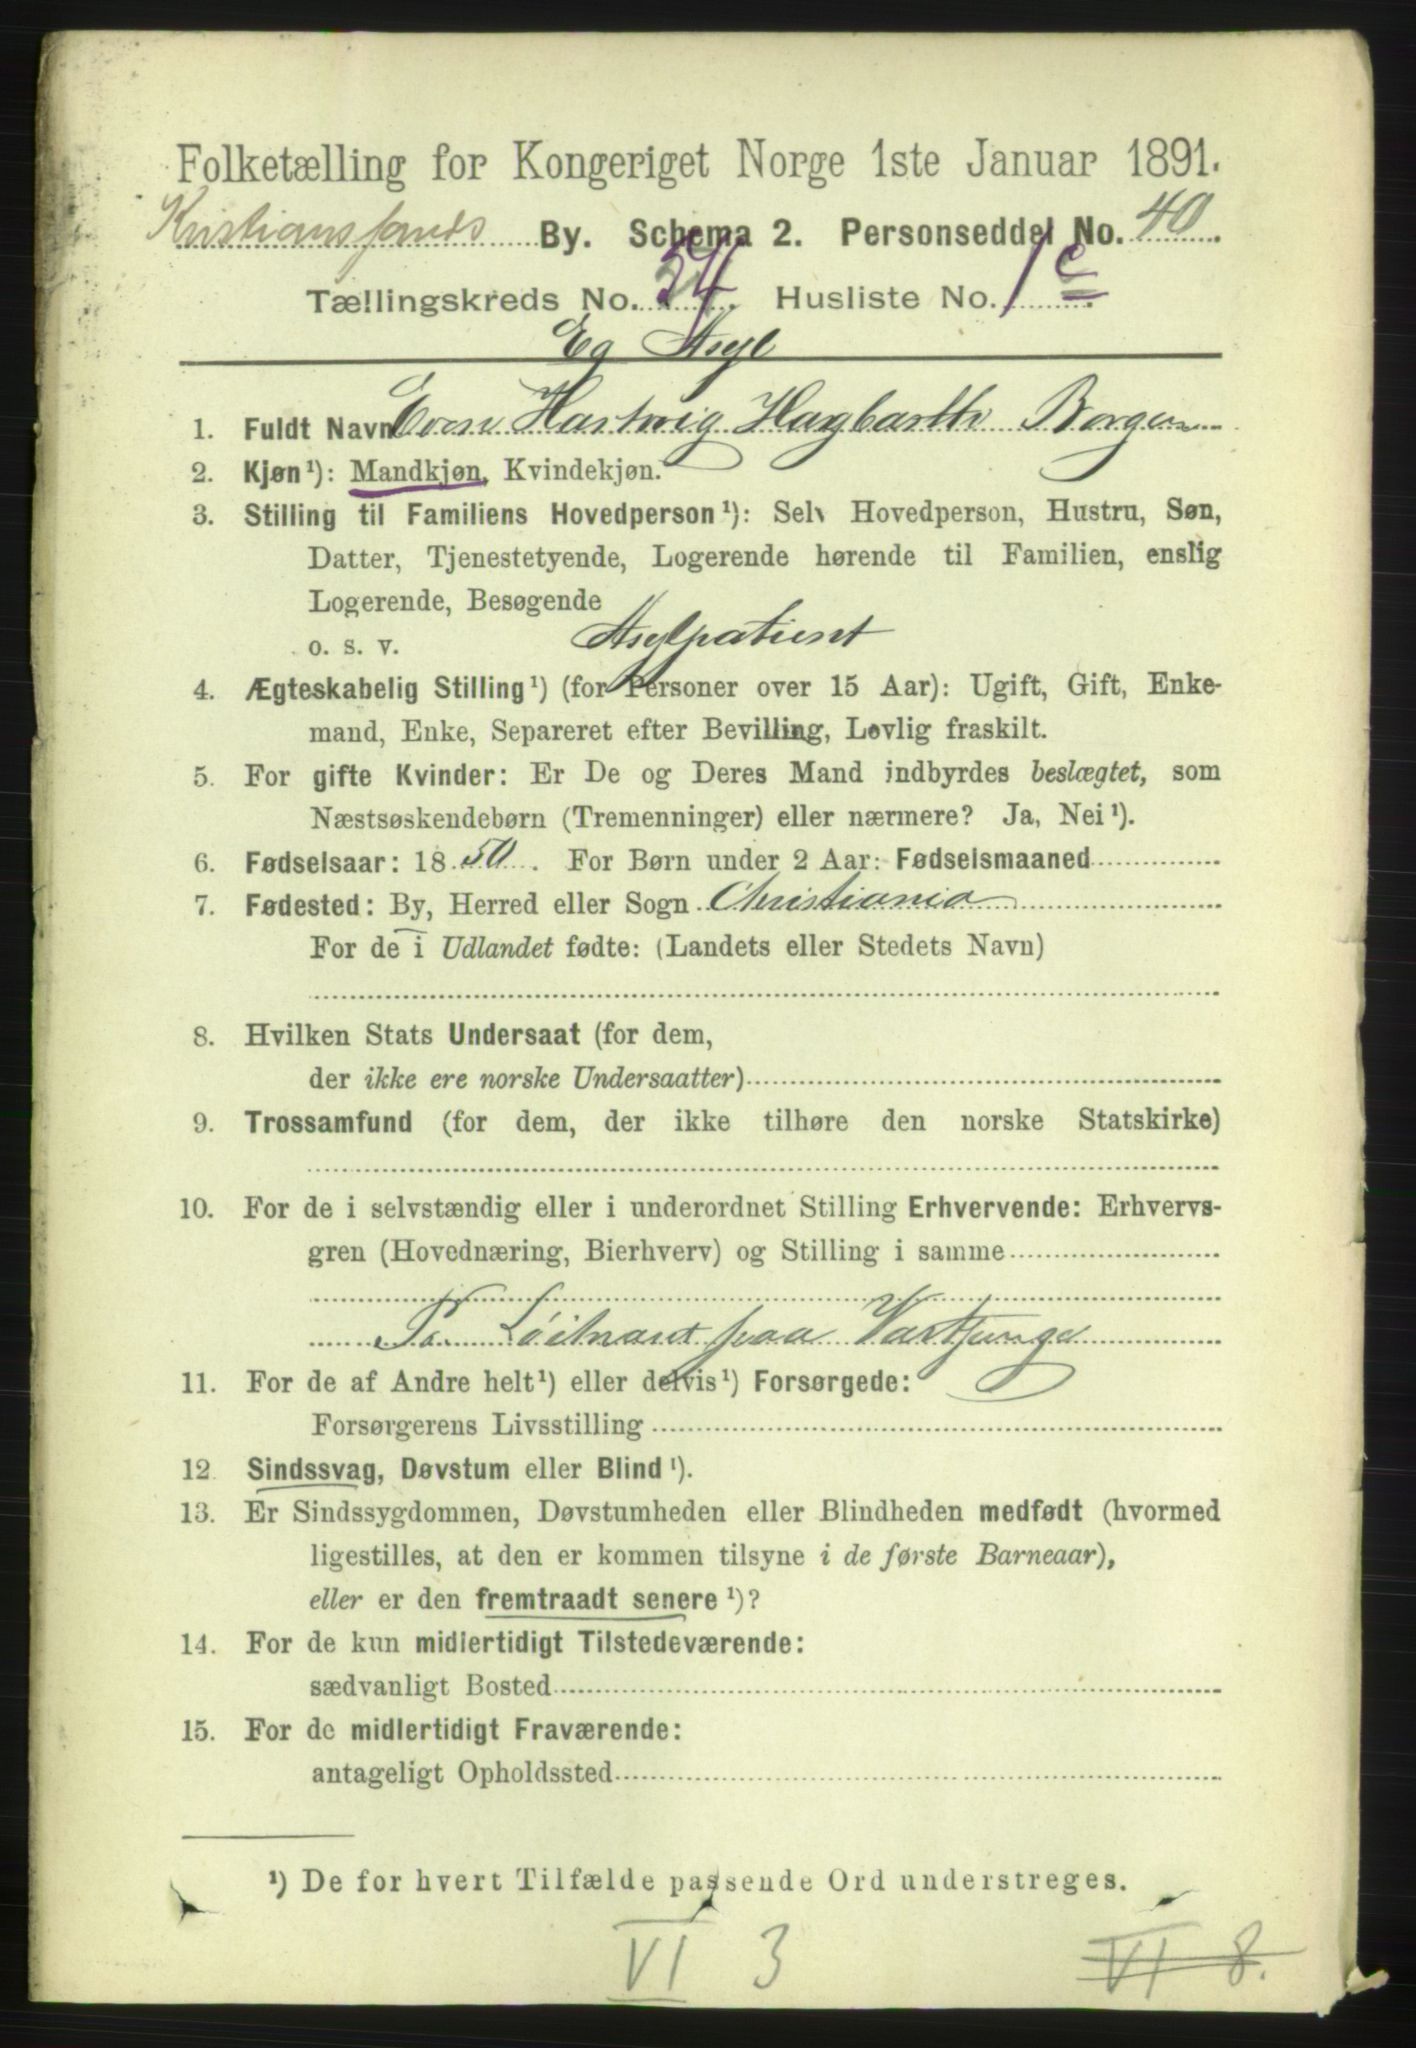 Folketælling for Kongeriget Norge 1ste Januar 1891.
Kristianssands By. Schema 2. Personseddel No. 40.
Tællingskreds No. 34. Husliste No. 1 c.
Eg Asyl
1. Fuldt Navn Even Hartvig Hagbarth Borgen
2. Kjøn¹): Mandkjøn, Kvindekjøn.
3. Stilling til Familiens Hovedperson¹): Selv Hovedperson, Hustru, Søn,
Datter, Tjenestetyende, Logerende hørende til Familien, enslig
Logerende, Besøgende
o. s. v. Asylpatient
4. Ægteskabelig Stilling¹) (for Personer over 15 Aar): Ugift, Gift, Enke-
mand, Enke, Separeret efter Bevilling, Lovlig fraskilt.
5. For gifte Kvinder: Er De og Deres Mand indbyrdes beslægtet, som
Næstsøskendebørn (Tremenninger) eller nærmere? Ja, Nei¹).
6. Fødselsaar: 1850. For Børn under 2 Aar: Fødselsmaaned
7. Fødested: By, Herred eller Sogn Christiania
For de i Udlandet fødte: (Landets eller Stedets Navn)
8. Hvilken Stats Undersaat (for dem,
der ikke ere norske Undersaatter)
9. Trossamfund (for dem, der ikke tilhøre den norske Statskirke)
10. For de i selvstændig eller i underordnet Stilling Erhvervende: Erhvervs-
gren (Hovednæring, Bierhverv) og Stilling i samme
Pr. Löitnant paa Vartpenge
11. For de af Andre helt¹) eller delvis¹) Forsørgede:
Forsørgerens Livsstilling
12 Sindssvag, Døvstum eller Blind¹).
13. Er Sindssygdommen, Døvstumheden eller Blindheden medfødt (hvormed
ligestilles, at den er kommen tilsyne i de første Barneaar),
eller er den fremtraadt senere¹)?
14. For de kun midlertidigt Tilstedeværende:
sædvanligt Bosted
15. For de midlertidigt Fraværende:
antageligt Opholdssted
¹) De for hvert Tilfælde passende Ord understreges.
VI 3 VI 8.